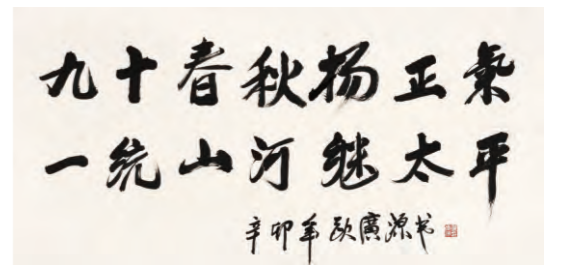 九十春秋扬正氣
一统山河继太平
辛卯年欧廣源书